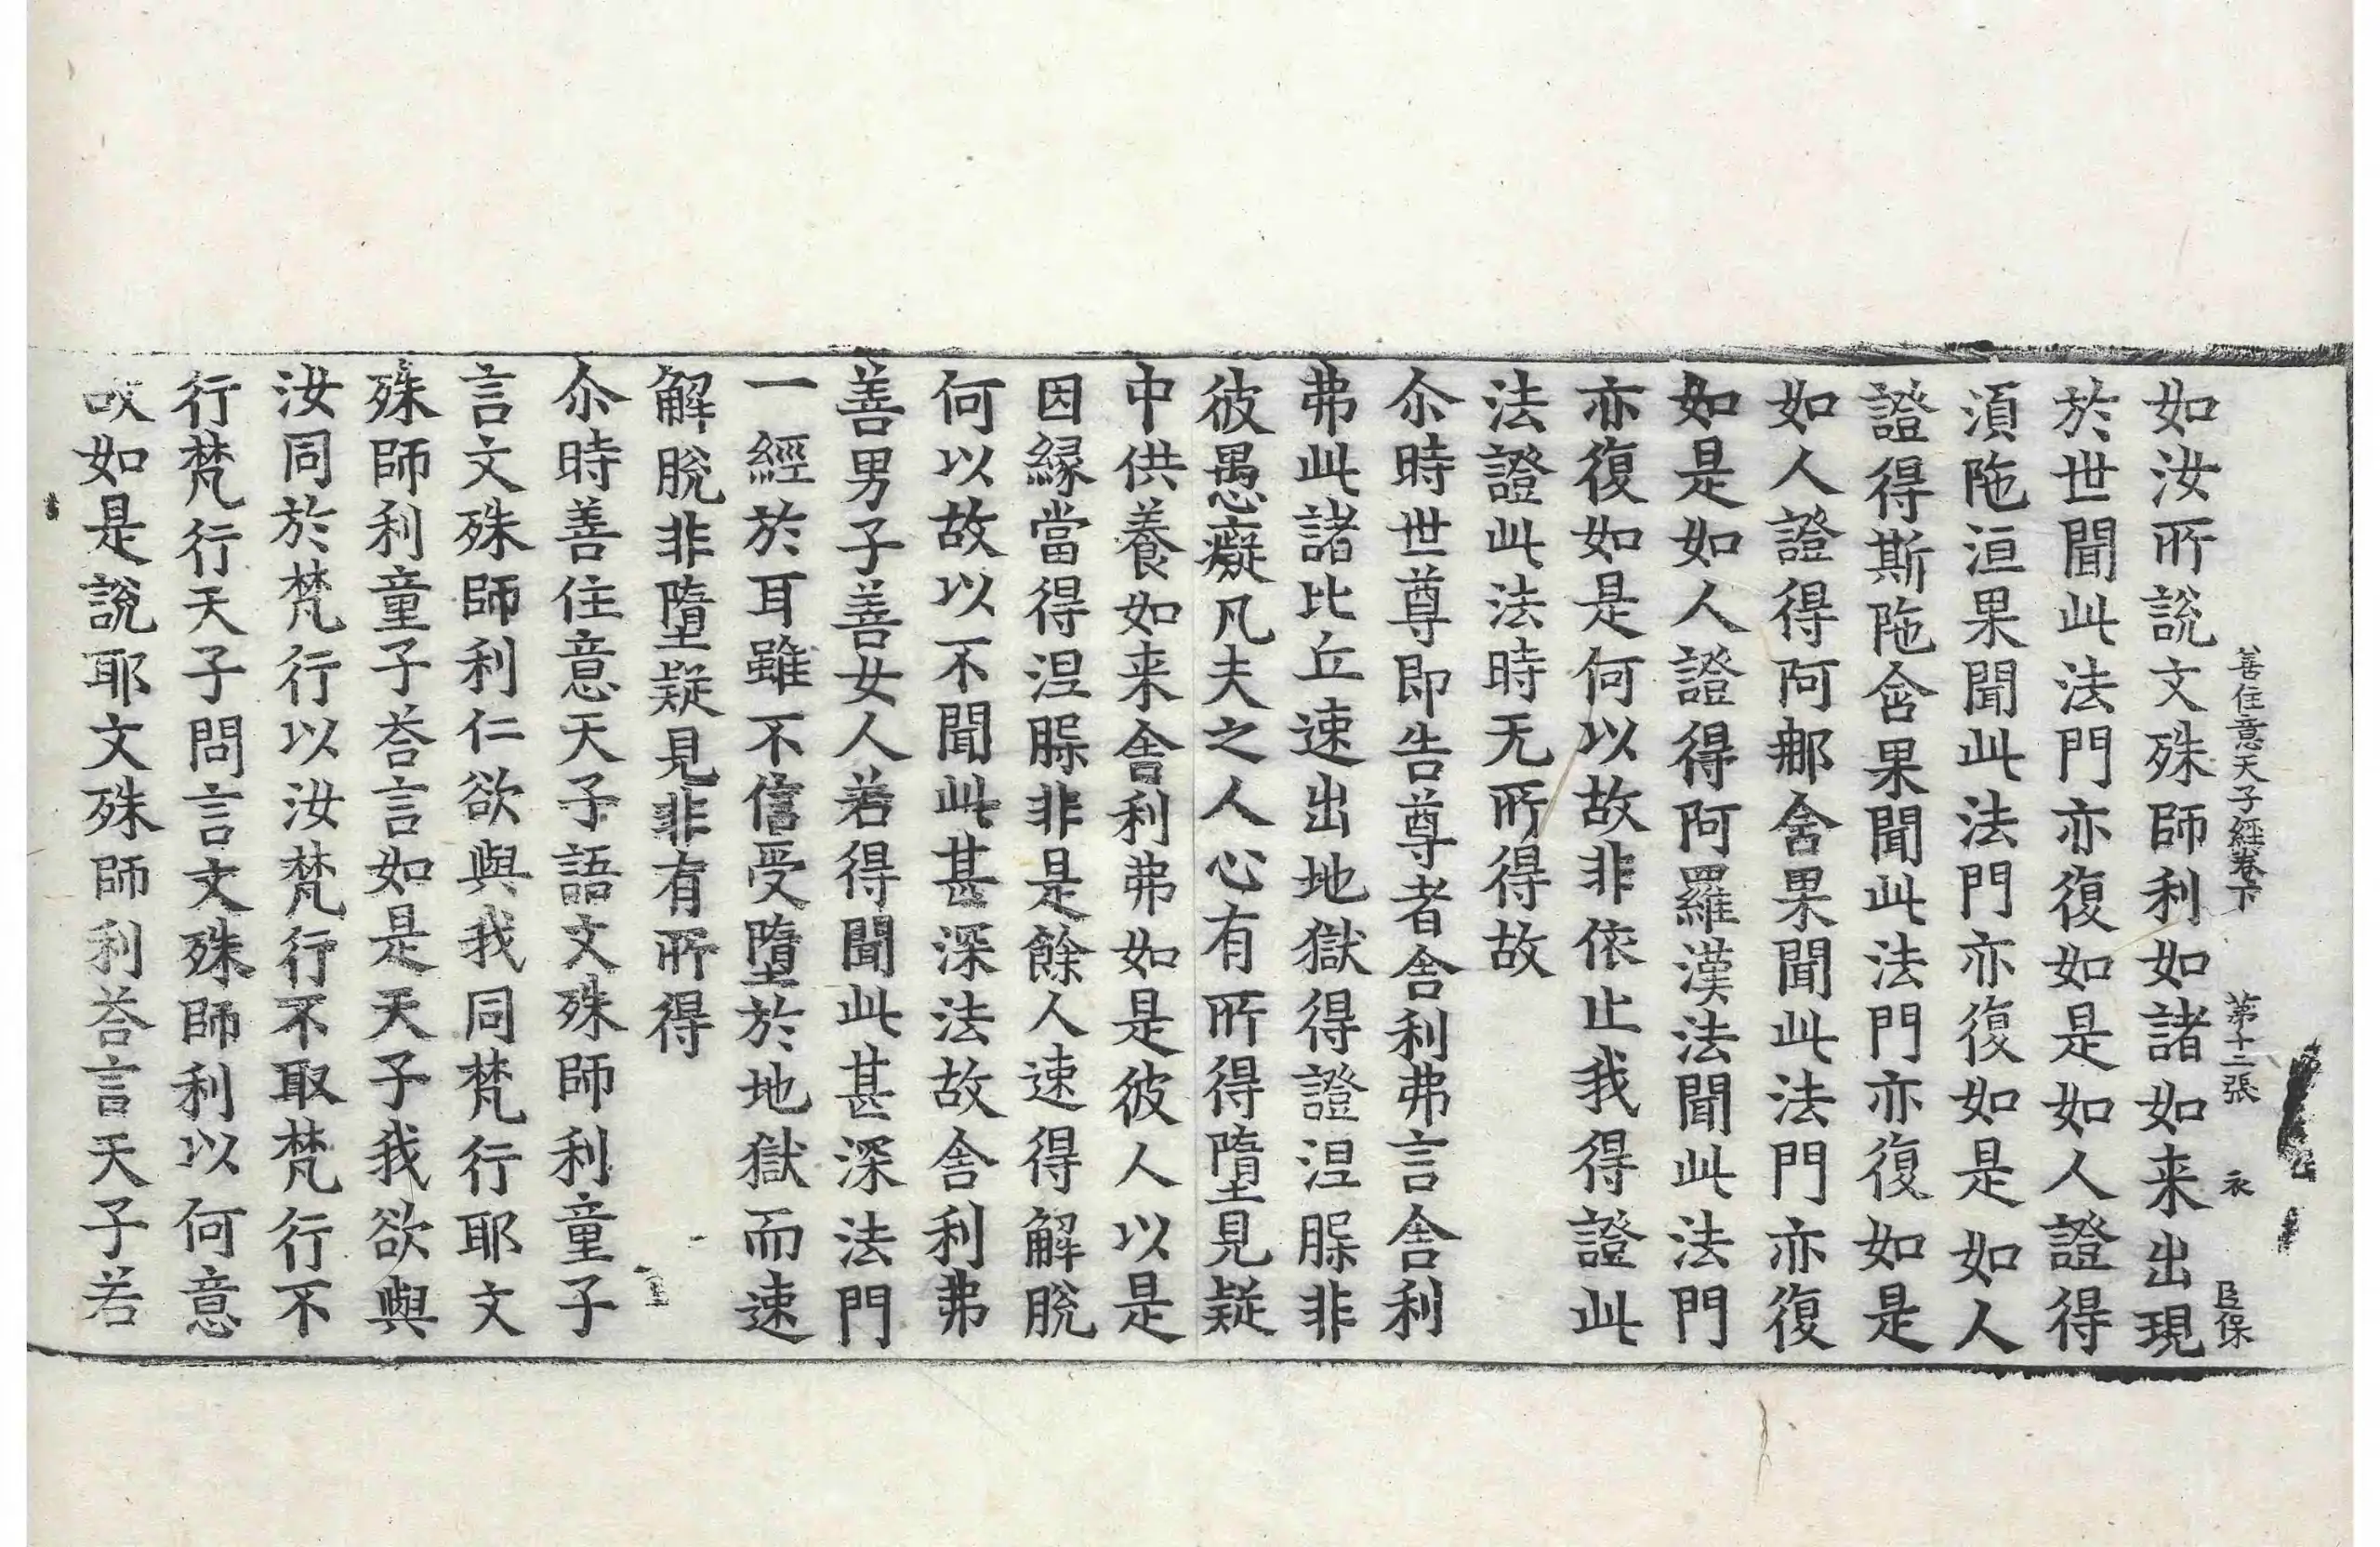 善住意天子經卷下　第十二張　衣　臣保
如汝所說文殊師利如諸如来出現
於世聞此法門亦復如是如人證得
湏陁洹果聞此法門亦復如是如人
證得斯陁含果聞此法門亦復如是
如人證得阿那舍果聞此法門亦復
如是如人證得阿羅漢法聞此法門
亦復如是何以故非依止我得證此
法證此法時无所得故
尒時世尊即告尊者舎利弗言舎利
弗此諸比丘速出地獄得證涅槃非
彼愚癡凡夫之人心有所得墮見疑
中供養如来舎利弗如是彼人以是
因緣當得涅槃非是餘人速得解脫
何以故以不聞此甚深法故舎利弗
善男子善女人若得聞此甚深法門
一經於耳雖不信受墮於地獄而速
解脫非墮疑見非有所得
尒時善住意天子語文殊師利童子
言文殊師利仁欲與我同梵行耶文
殊師利童子荅言如是天子我欲與
汝同於梵行以汝梵行不取梵行不
行梵行天子問言文殊師利以何意
故如是說耶文殊師利荅言天子若